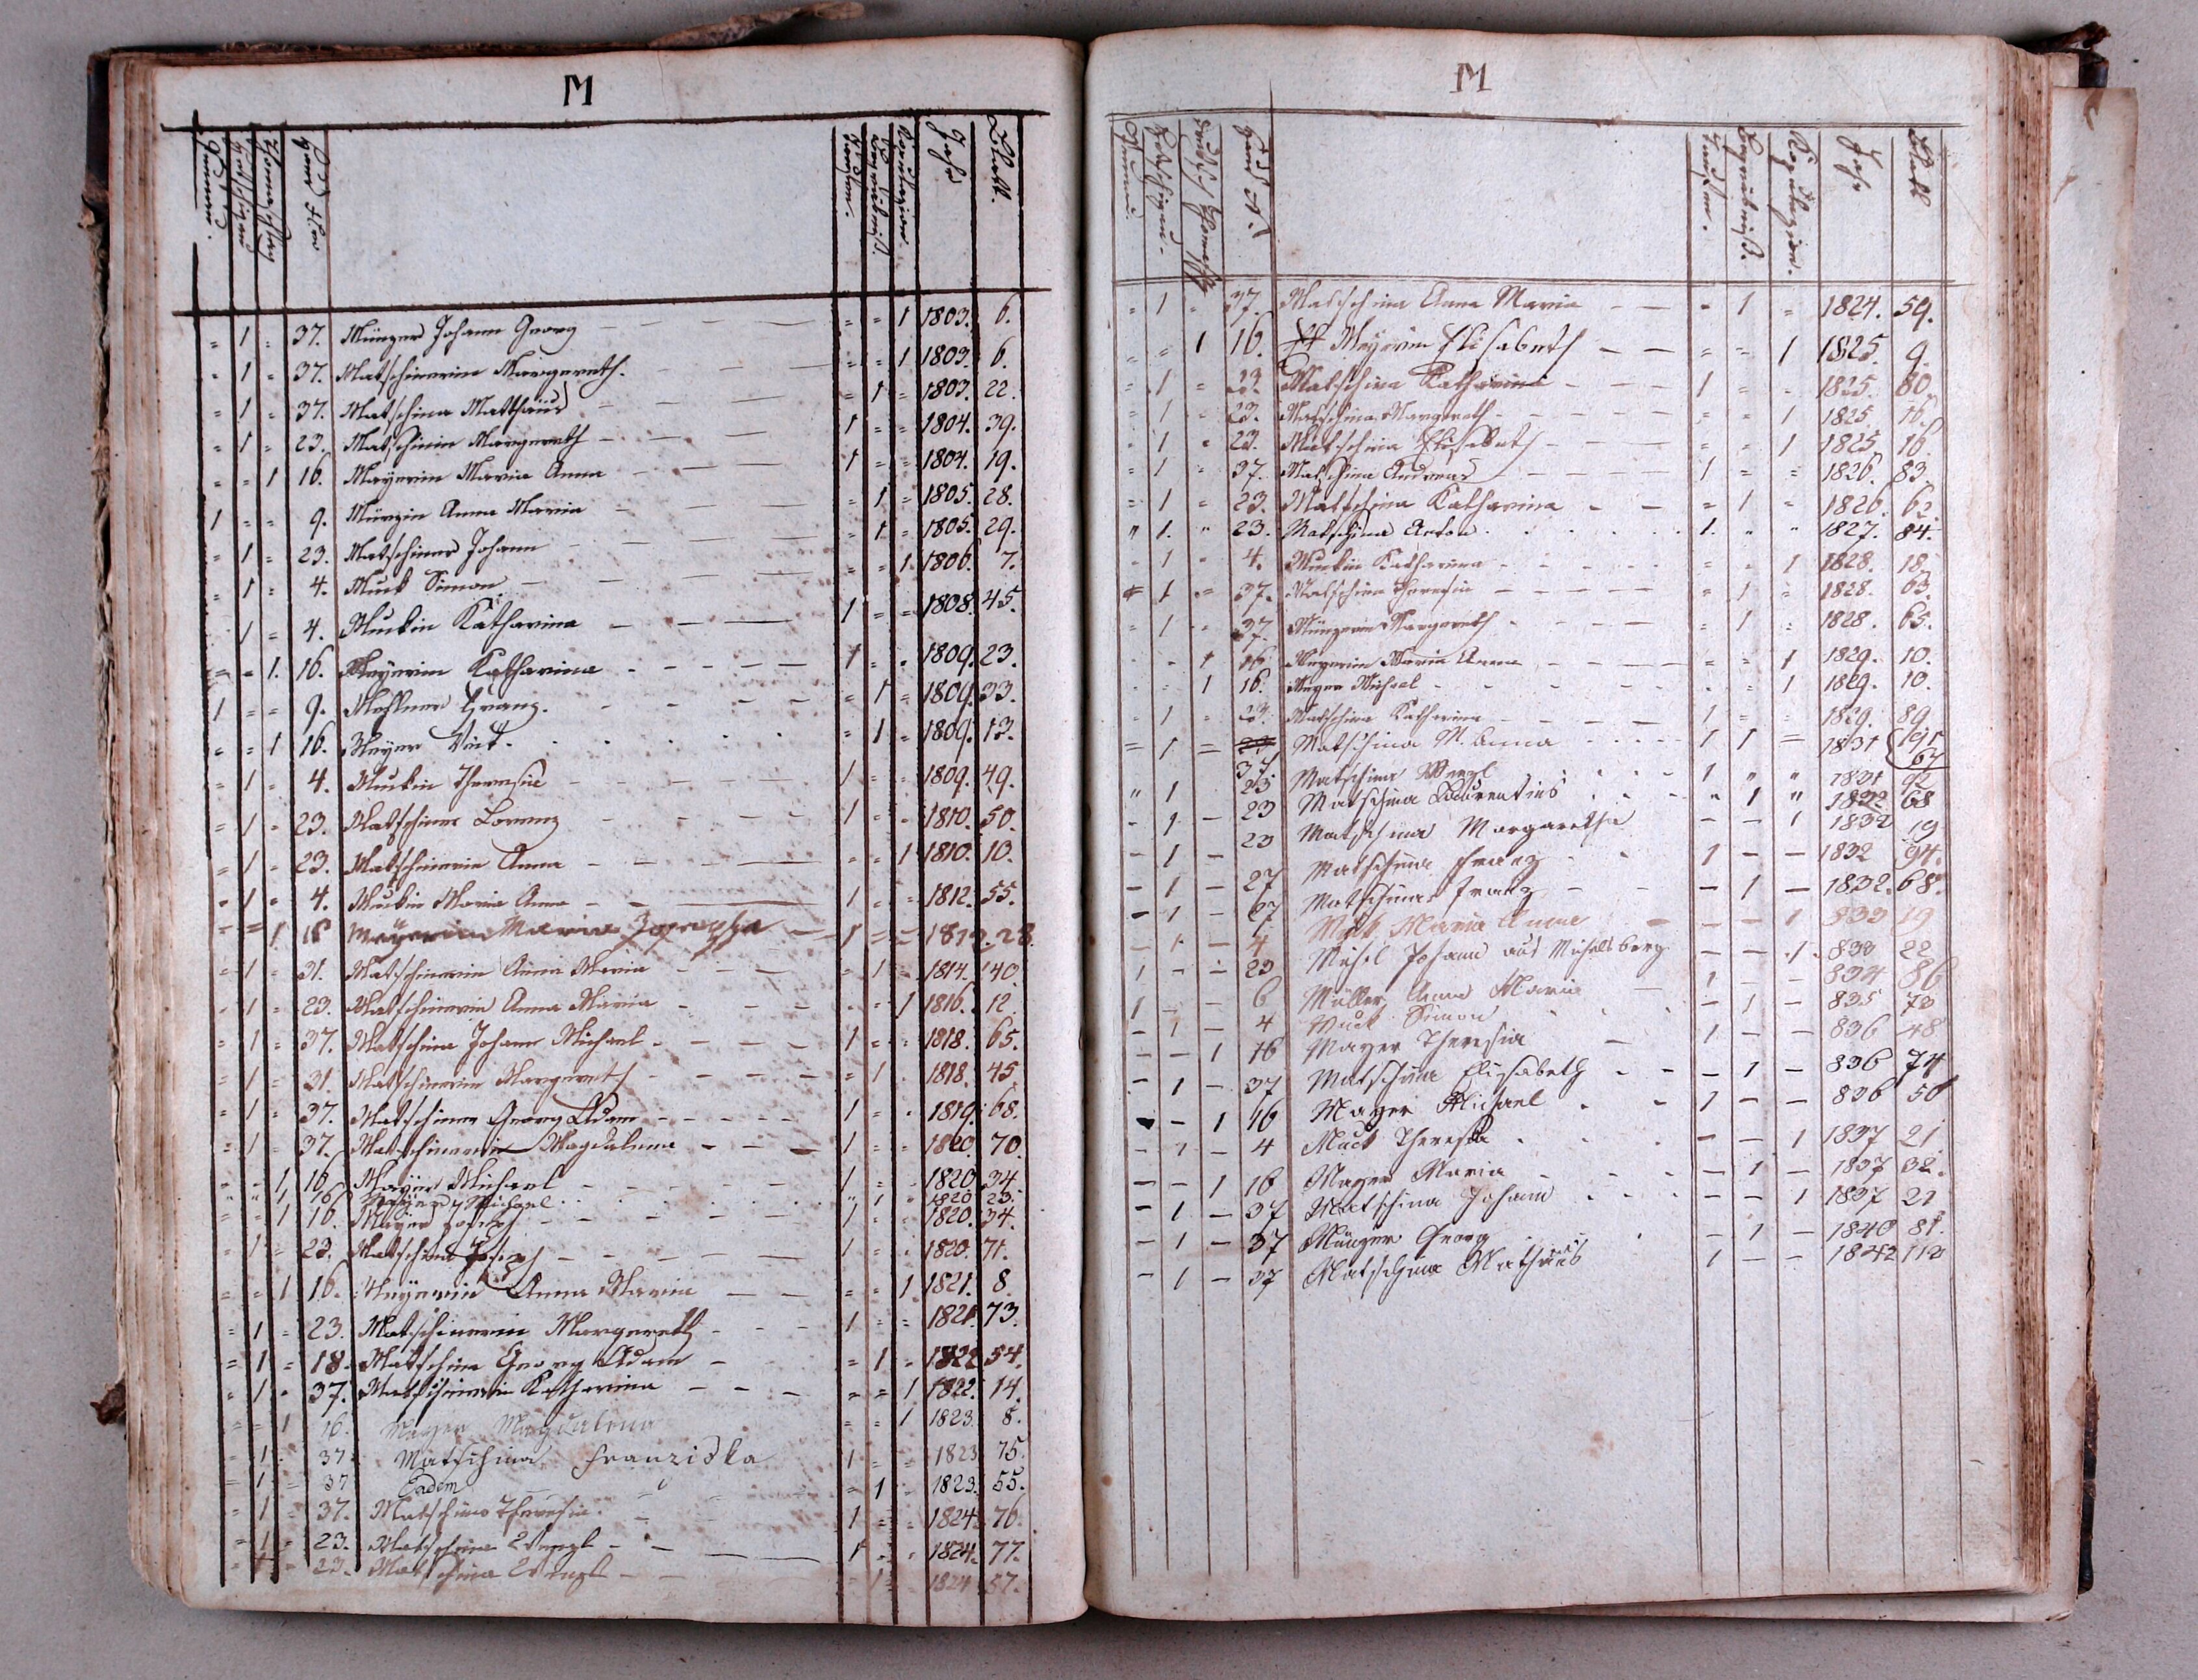 M
Jahr
Blatt.
= 1 = 37. Münzer Johann Georg — = = 1 1803. 6.
= 1 = 37. Matschinerin Margereth. — = = 1 1803. 6.
= 1 = 37. Matschina Matthäus — = 1 = 1803. 22.
= 1 = 23. Matschinin Margereth — 1 = = 1804. 39.
= = 1 16. Mayerin Maria Anna — 1 = = 1804. 19.
1 = = 9. Anna Maria — = 1 = 1805. 28.
= 1 = 23. Matschiner Johann — = 1 = 1805. 29.
= 1 = 4. Muck Simon — = = 1 1806. 7.
1 = 4. Muckin Katharina — 1 = = 1808. 45.
= = 1. 16. Meyerin Katharina — 1 = = 1809. 23.
1 = = 9. Franz. — = 1 = 1809. 33.
= = 1 16. Meyer Veit — = 1 = 1809. 13.
= 1 = 4. Muckin Theresia — 1 = = 1809. 49.
= 1 = 23. Matschiner Lorenz — 1 = = 1810. 50.
= 1 = 23. Matschinerin Anna — = = 1 1810. 10.
= 1 = 4. Muckin Maria Anna — 1 = = 1812. 55.
= = 1 Mayerin Maria — 1 = = 28.
= 1 = 31. Matschinerin Anna Maria — = 1 = 1814. 40.
= 1 = 23. Matschinerin Anna Maria — = = 1 1816. 12.
= 1 = 37. Matschina Johann Michael — 1 = = 1818. 65.
= 1 = 31. Matschinerin Margereth — = 1 = 1818. 45.
= 1 = 37. Matschiner Georg Adam — 1 = = 1819. 68.
= 1 = 37. Matschinerin Magdalena — 1 = = 1820. 70.
= = 1 16. Mayer Michael — 1 = = 1820. 34
" " 1 16. Mayer Michael — " 1 " 1820 23.
= = 1 16. Mayer Joseph — 1 = = 1820. 34.
= 1 = 23. Matschina Joseph — 1 = = 1820. 71.
= = 1 16. Meyerin Anna Maria — = = 1 1821. 8.
= 1 = 23. Matschinerin Margereth — 1 = = 1821. 73.
= 1 = 18. Matschina Georg Adam — = 1 = 1822 54.
= 1 = 37. Matschinerin Katharina — = = 1 1822. 14.
= = 1 16. Mayer Magdalena = = 1 1823. 8.
= 1 = 37. Matschina Franziska 1 = = 1823. 75.
= 1 = 37 Eadem — = 1 = 1823. 55.
= 1 = 37. Matschina Theresia — 1 = = 1824. 76.
= 1 = 23. Matschina Wenzl — 1 = = 1824. 77.
= 1 = 23. Matschina Wenzl — = 1 = 1824 57.
M
Jahr
Blatt
= 1 = 37. Matschina Anna Maria — = 1 = 1824. 59.
= = 1 16. Meyerin Elisabeth — = = 1 1825. 9.
= 1 = 23. Matschina Katharina — 1 = = 1825. 80.
= 1 = 23. Matschina Margereth — = = 1 1825. 16.
= 1 = 23. Matschina Elisabeth — = = 1 1825 16.
= 1 = 37. Matschina Andreas — 1 = = 1826. 83.
= 1 = 23. Matschina Katharina — = 1 = 1826. 62.
" 1. " 23. Matschina Anton 1. " " 1827. 84.
= 1 = 4. Muckin Katharina — = = 1 1828. 18.
= 1 = 37. Matschina Theresia — = 1 = 1828. 63.
= 1 = 37. Münzerin Margereth — = 1 = 1828. 65.
= = 1 16. Meyerin Maria Anna — = = 1 1829. 10.
= = 1 16. Meyer Michael — = = 1 1829. 10.
= 1 = 23. Matschina Katharina — 1 = = 1829. 89.
= 1 = 37. Matschina M. Anna — 1 1 = 1831 91 67
" 1 23 Matschina Wenzl 1 " " 1831 92
- 1 - 23 Matschina Laurentius " 1 " 1832 68
23 Matschina Margaretha - - 1 1832 19
- 1 - 27 Matschina Franz 1 - - 1832 94.
- 1 - 67 Matschina Franz - 1 - 1832. 68.
- 1 - 4 Muck Maria Anna - - 1 833 19
- 1 - 23 Michl Johann aus Michelsberg - - 1. 833 22
1 - - 6 Müller Anna Maria 1 - - 834 86
1 - - 4 Muck Simon - 1 - 835 73
- - 1 16 Mayer Theresia 1 - - 836 48
- 1 - 37 Matschina Elisabeth - 1 - 836 74
- - 1 16 Mayer Michael 1 - - 836 50
- 1 - 4 Muck Theresia - - 1 1837 21
- - 1 16 Mayer Maria - 1 - 1837 32.
- 1 - 37 Matschina Johann - - 1 1837 21
- 1 - 37 Münzer Georg - 1 - 1840 81.
- 1 - 37 Matschina Mathäus 1 - - 1842 112